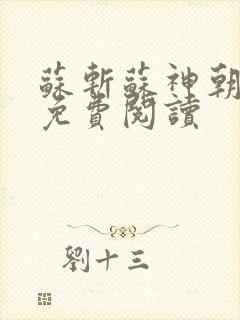 蘇斬蘇神朝
免費閱讀
劉十三